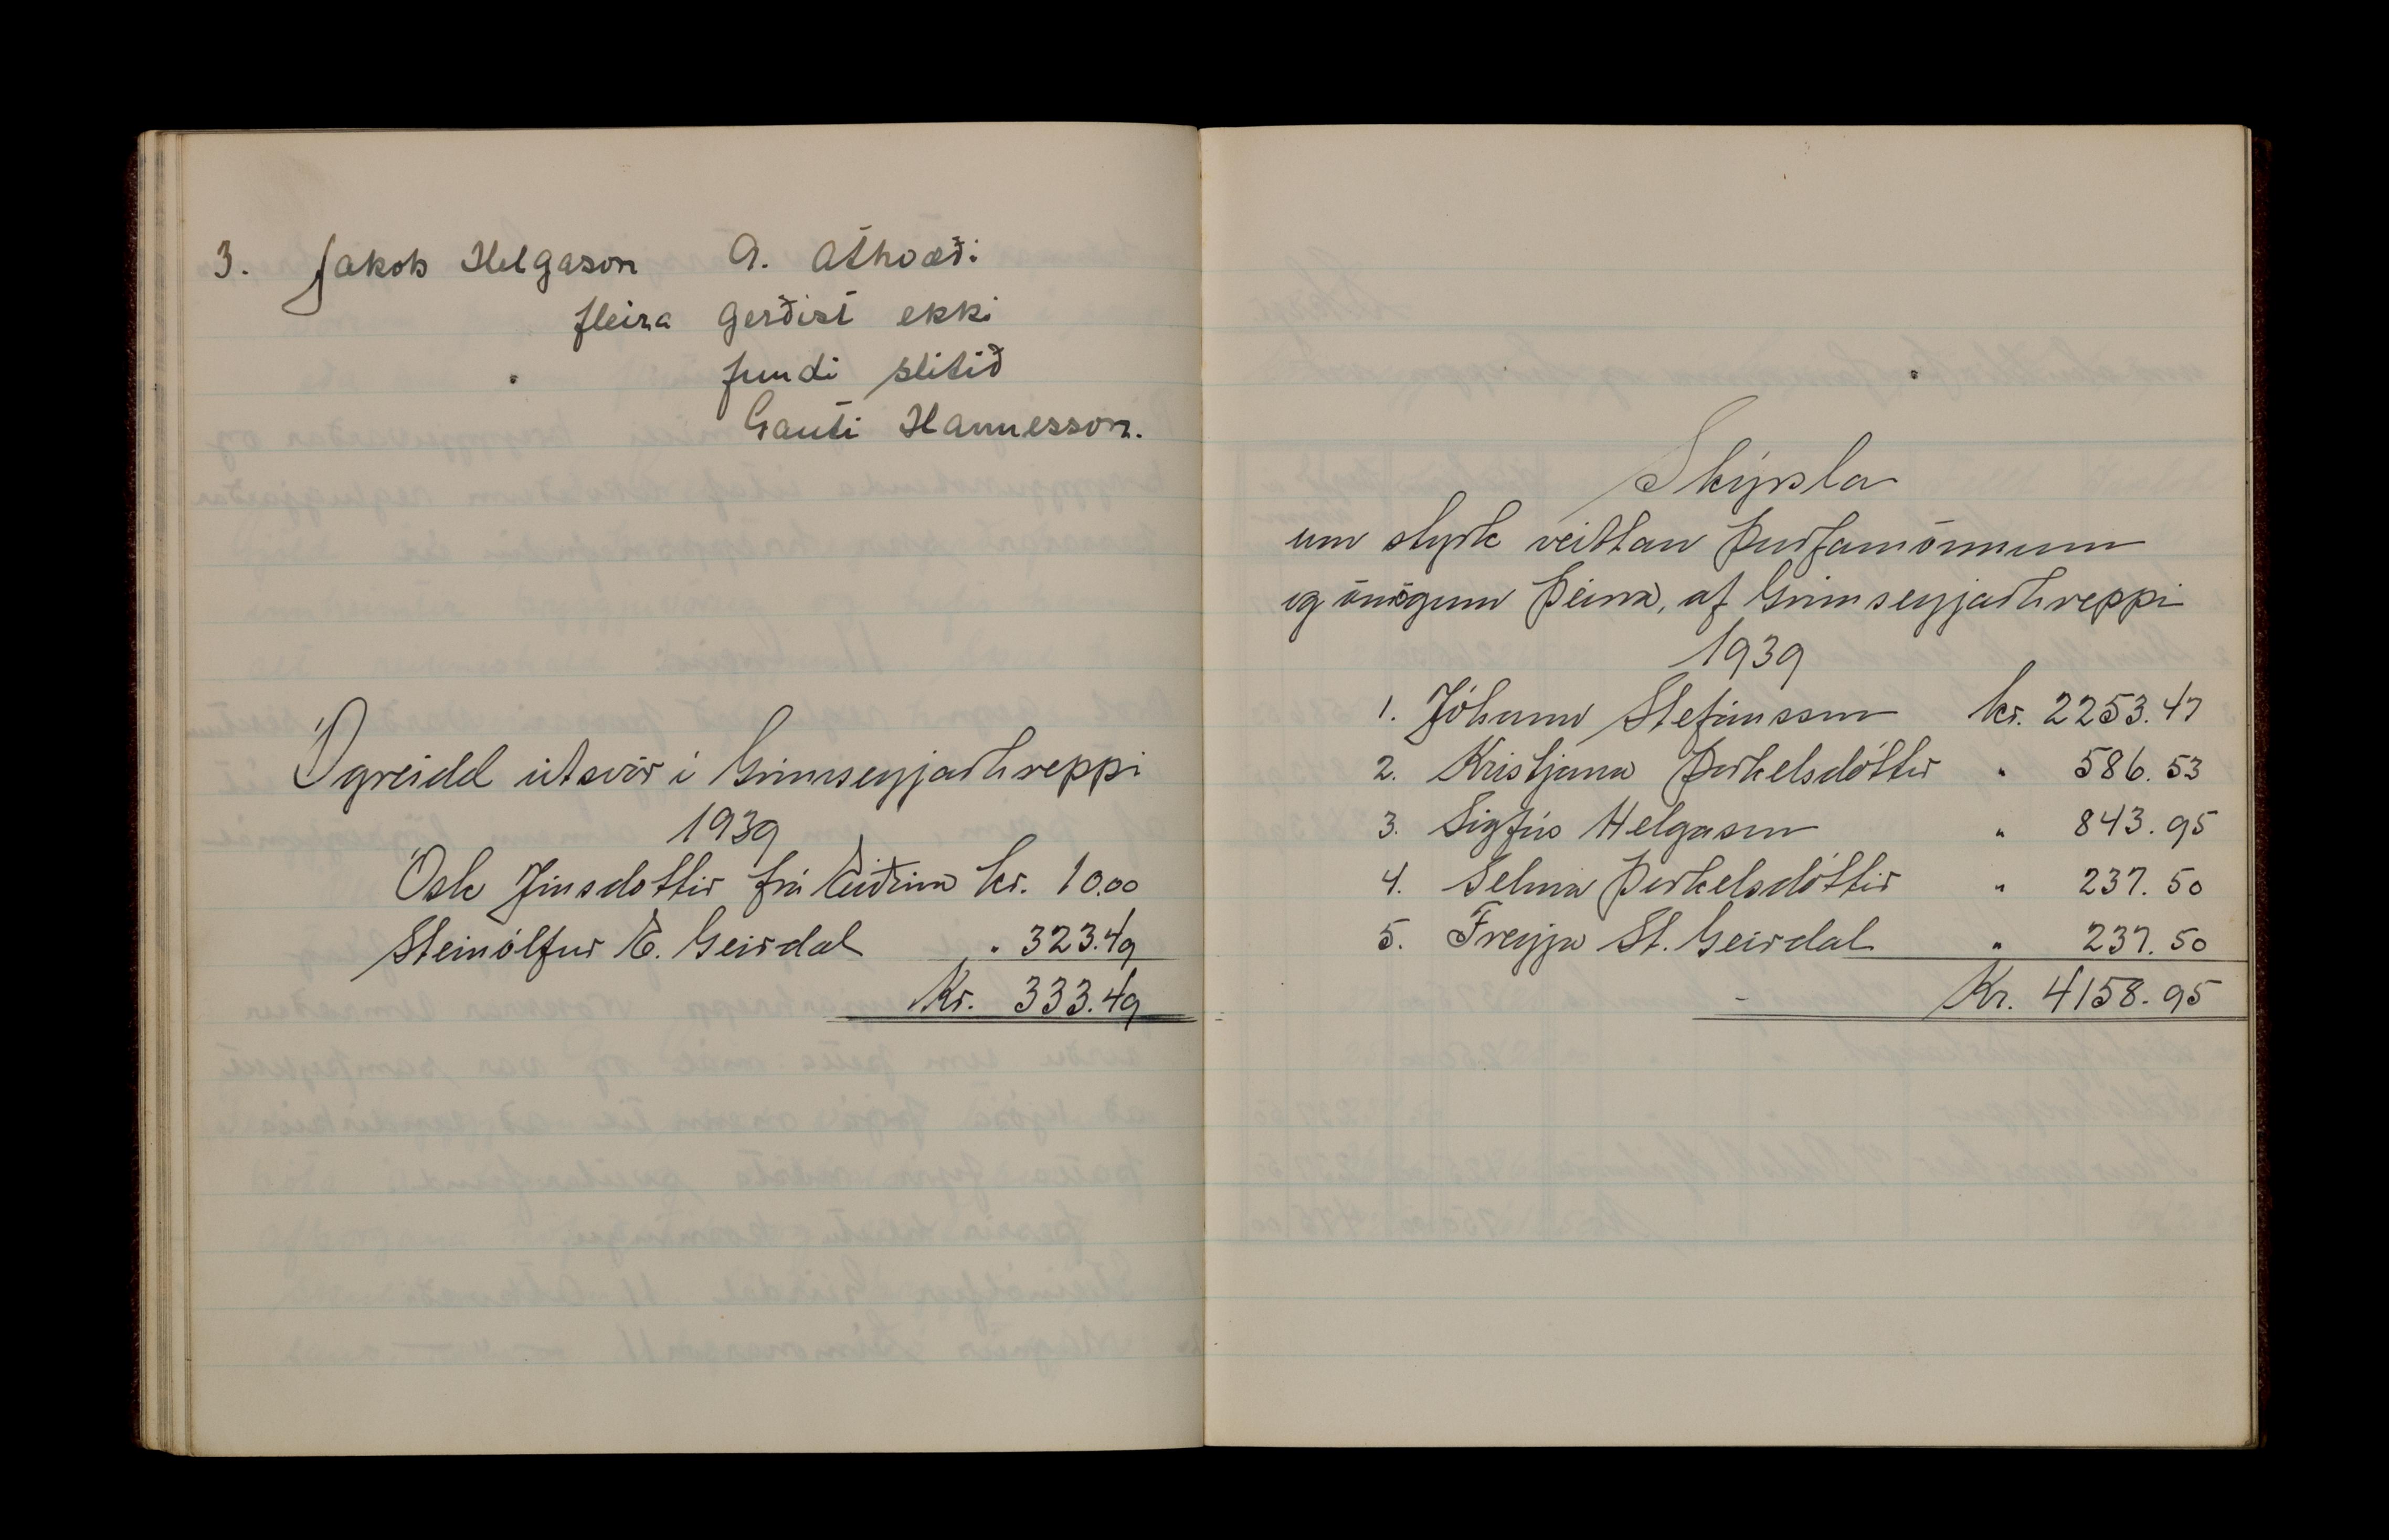 3. Jakob Helgason 9. Atkvæði
fleira gerðist ekki
fundi slitið
Gauti Hannesson.
Ógreidd útsvör í Grímseyjarhreppi
1939
Ósk Jónsdóttir frá Eiðum kr. 10.00
Steinólfur E. Geirdal " 323.49
Kr. 333.49
Skýrsla
um styrk veittan þurfamönnum
og ómögum þeirra, af Grímseyjarhreppi
1939
1. Jóhann Stefánsson kr. 2253.47
2. Kristjana Þorkelsdóttir " 586.53
3. Sigfús Helgason " 843.95
4. Selma Þorkelsdóttir " 237.50
5. Freyja St. Geirdal " 237.50
Kr. 4158.95